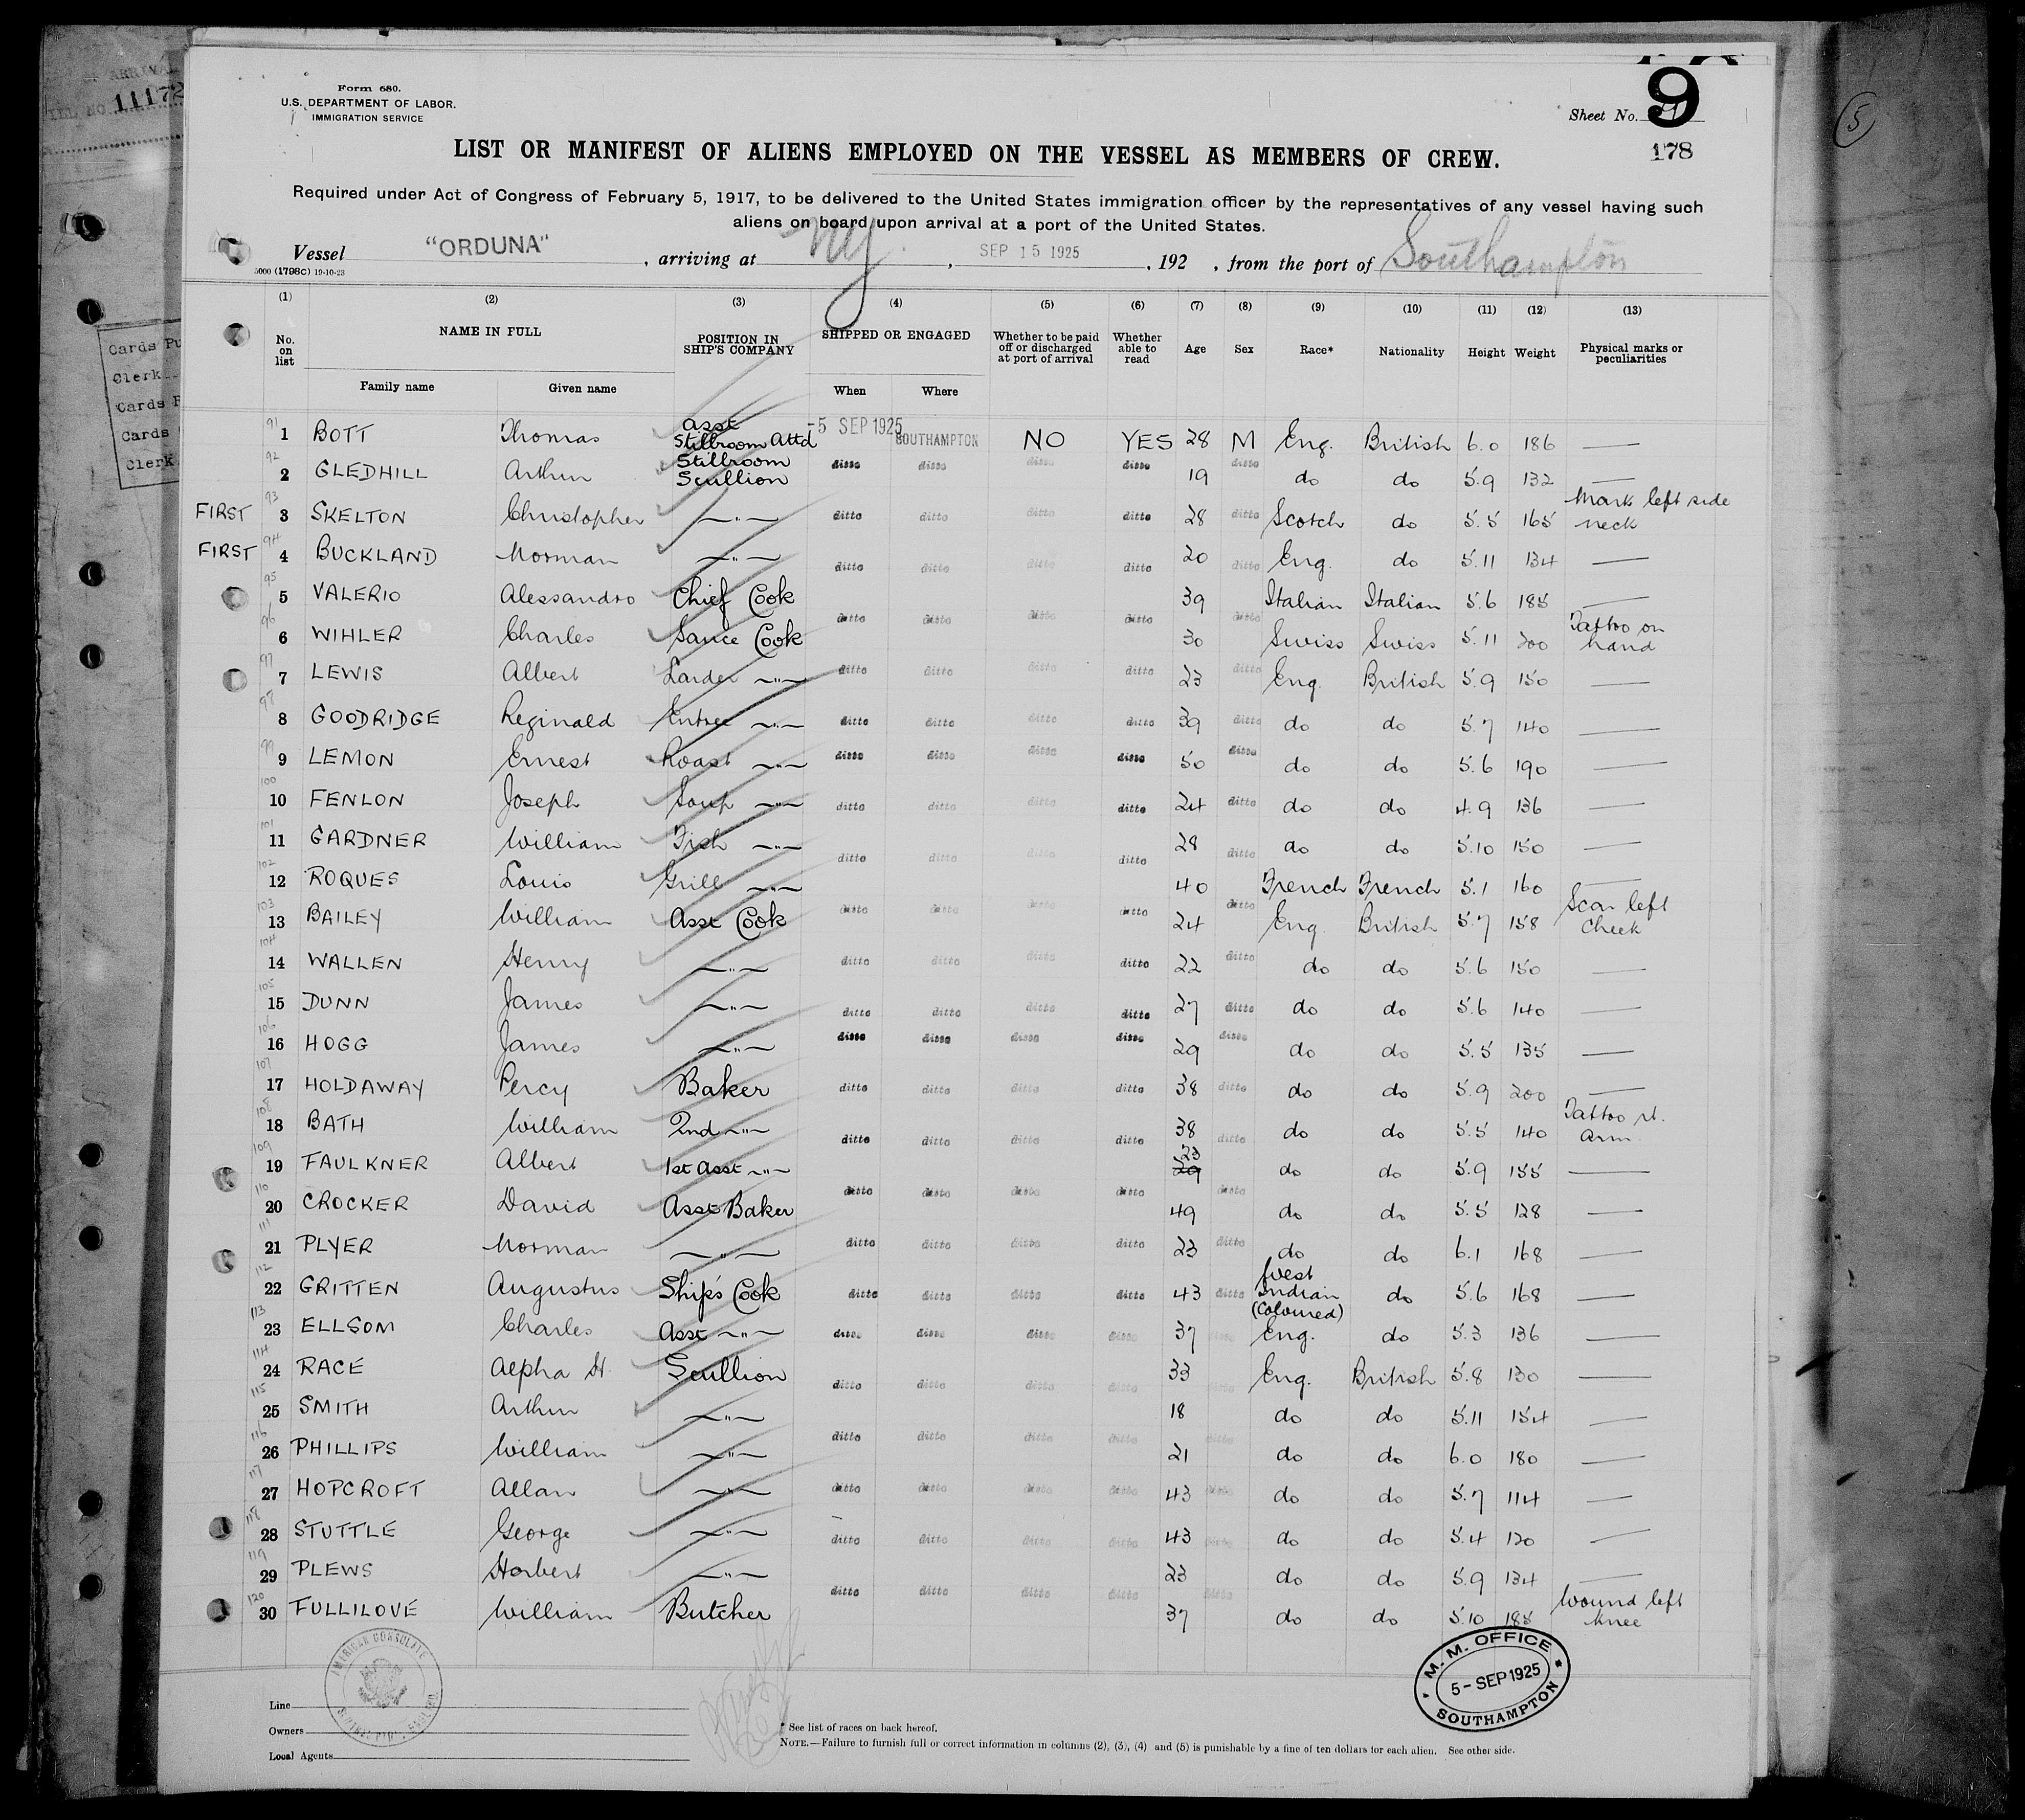 OF ARRIVAL
11172
Form 680.
U.S. DEPARTMENT OF LABOR.
IMMIGRATION SERVICE
Sheet No. 9
178
5
LIST OR MANIFEST OF ALIENS EMPLOYED ON THE VESSEL AS MEMBERS OF CREW.
Required under Act of Congress of February 5, 1917, to be delivered to the United States immigration officer by the representatives of any vessel having such
aliens on board upon arrival at a port of the United States.
Vessel "ORDUNA", arriving at NY, SEP 15 1925, 192 , from the port of Southampton
5000 (1798C) 19-10-23
(1) (2) (3) (4) (5) (6) (7) (8) (9) (10) (11) (12) (13)
No. on list NAME IN FULL POSITION IN SHIP'S COMPANY SHIPPED OR ENGAGED Whether to be paid off or discharged at port of arrival Whether able to read Age Sex Race* Nationality Height Weight Physical marks or peculiarities
Family name Given name When Where
Cards Pu
Clerk
Cards F
Cards
Clerk
91 1 BOTT Thomas Asst Stillroom Attd -5 SEP 1925 SOUTHAMPTON NO YES 28 M Eng. British 6.0 186 —
92 2 GLEDHILL Arthur Stillroom Scullion ditto ditto ditto ditto 19 ditto do do 5.9 132 —
FIRST 93 3 SKELTON Christopher —"— ditto ditto ditto ditto 28 ditto Scotch do 5.5 165 Mark left side neck
FIRST 94 4 BUCKLAND Norman —"— ditto ditto ditto ditto 20 ditto Eng. do 5.11 134 —
95 5 VALERIO Alessandro Chief Cook ditto ditto ditto ditto 39 ditto Italian Italian 5.6 185 —
96 6 WIHLER Charles Sauce Cook 30 Swiss Swiss 5.11 200 Tattoo on hand
97 7 LEWIS Albert Larder —"— ditto ditto ditto ditto 23 ditto Eng. British 5.9 150 —
98 8 GOODRIDGE Reginald Entree —"— ditto ditto ditto ditto 39 ditto do do 5.7 140 —
99 9 LEMON Ernest Roast —"— ditto ditto ditto ditto 50 ditto do do 5.6 190 —
100 10 FENLON Joseph Soup —"— ditto ditto ditto ditto 24 ditto do do 4.9 136 —
101 11 GARDNER William Fish —"— ditto ditto ditto ditto 28 ditto do do 5.10 150 —
102 12 ROQUES Louis Grill —"— 40 French French 5.1 160 —
103 13 BAILEY William Asst Cook ditto ditto ditto ditto 24 ditto Eng British 5.7 158 Scar left cheek
104 14 WALLEN Henry —"— ditto ditto ditto ditto 22 ditto do do 5.6 150 —
105 15 DUNN James —"— ditto ditto ditto ditto 27 ditto do do 5.6 140 —
106 16 HOGG James —"— ditto ditto ditto ditto 29 ditto do do 5.5 135 —
107 17 HOLDAWAY Percy Baker ditto ditto ditto ditto 38 ditto do do 5.9 200 —
108 18 BATH William 2nd —"— ditto ditto ditto ditto 38 ditto do do 5.5 140 Tattoo rt. arm
109 19 FAULKNER Albert 1st Asst —"— 23 29 do do 5.9 155 —
110 20 CROCKER David Asst Baker ditto ditto ditto ditto 49 ditto do do 5.5 128 —
111 21 PLYER Norman —"— ditto ditto ditto ditto 23 ditto do do 6.1 168 —
112 22 GRITTEN Augustus Ship's Cook ditto ditto ditto ditto 43 ditto West Indian (Coloured) do 5.6 168 —
113 23 ELLSOM Charles Asst —"— ditto ditto ditto ditto 37 ditto Eng. do 5.3 136 —
114 24 RACE Alpha H. Scullion ditto ditto ditto ditto 33 ditto Eng. British 5.8 130 —
115 25 SMITH Arthur —"— 18 do do 5.11 154 —
116 26 PHILLIPS William —"— ditto ditto ditto ditto 21 ditto do do 6.0 180 —
117 27 HOPCROFT Allan —"— ditto ditto ditto ditto 43 ditto do do 5.7 114 —
118 28 STUTTLE George —"— ditto ditto ditto ditto 43 ditto do do 5.4 120 —
119 29 PLEWS Herbert —"— 23 do do 5.9 134 —
120 30 FULLILOVE William Butcher ditto ditto ditto ditto 37 ditto do do 5.10 185 Wound left knee
AMERICAN CONSULATE
M. M. OFFICE
5 - SEP 1925
SOUTHAMPTON
Line
Owners
Local Agents
* See list of races on back hereof.
NOTE.—Failure to furnish full or correct information in columns (2), (3), (4) and (5) is punishable by a fine of ten dollars for each alien. See other side.